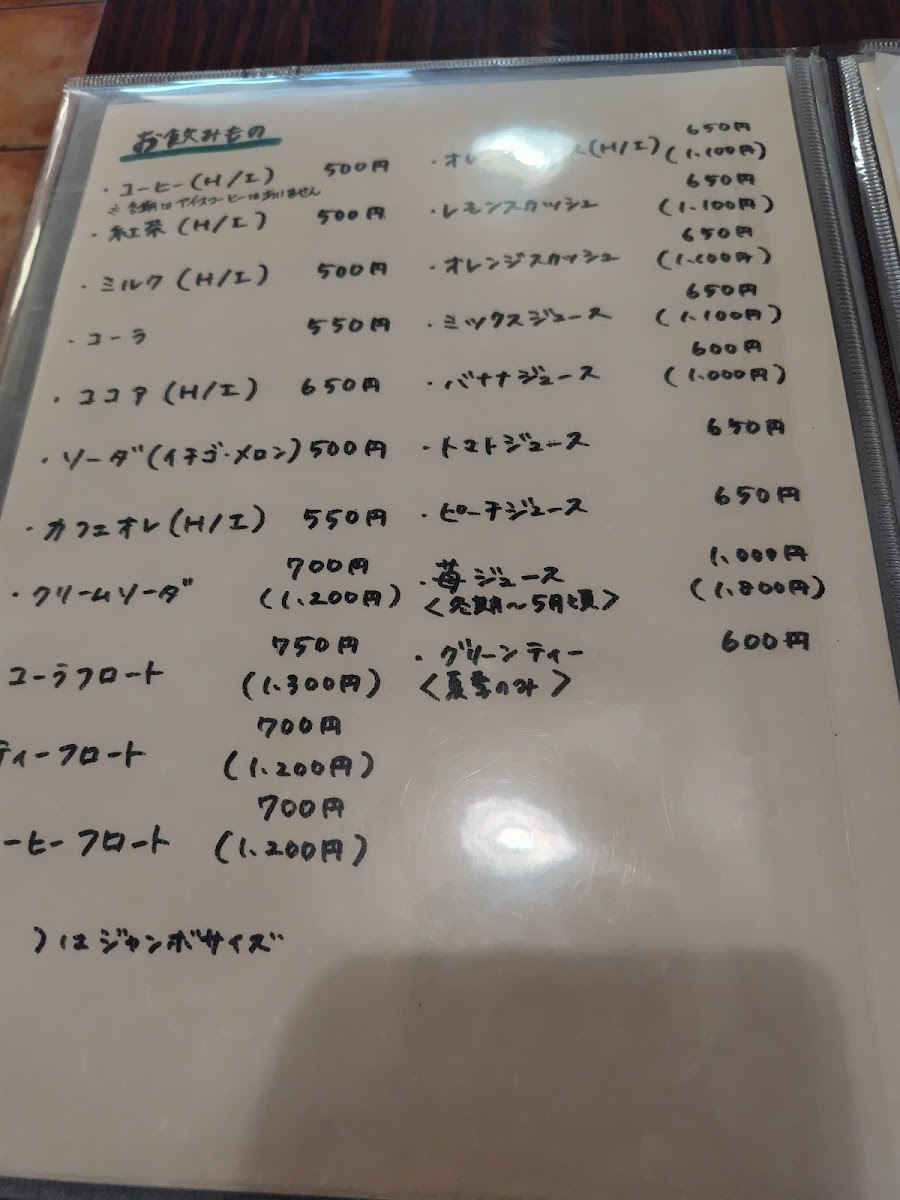 お飲みもの
・コーヒー(H/I) 500円
※冬期はアイスコーヒーはありません
・紅茶(H/I) 500円
・ミルク(H/I) 500円
・コーラ 550円
・ココア(H/I) 650円
・ソーダ(イチゴ・メロン) 500円
・カフェオレ(H/I) 550円
・クリームソーダ 700円
(1,200円)
コーラフロート 750円
(1,300円)
ティーフロート 700円
(1,200円)
ーヒーフロート 700円
(1,200円)
)はジャンボサイズ
・オレ ス(H/I) 650円
(1,100円)
・レモンスカッシュ 650円
(1,100円)
・オレンジスカッシュ 650円
(1,100円)
・ミックスジュース 650円
(1,100円)
・バナナジュース 600円
(1,000円)
・トマトジュース 650円
・ピーチジュース 650円
・苺ジュース 1,000円
<冬期～5月頃> (1,800円)
・グリーンティー 600円
<夏季のみ>